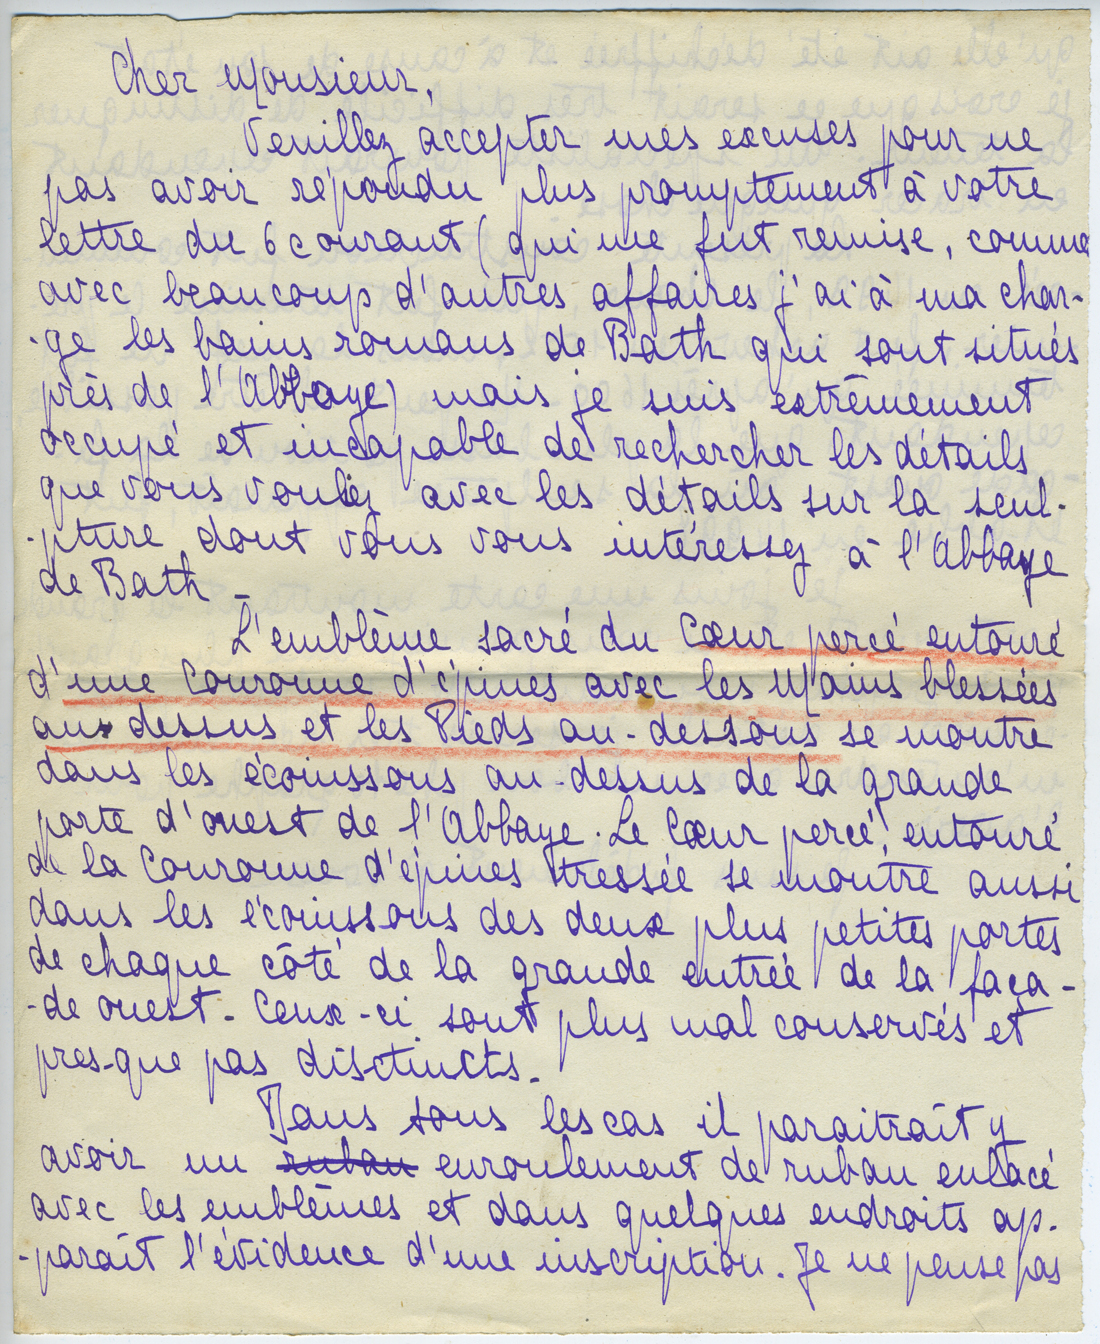 Cher Monsieur,
Veuillez accepter mes excuses pour ne
pas avoir répondu plus promptement à votre
lettre du 6 courant (qui me fut remise, comme
avec beaucoup d'autres affaires j'ai à ma char-
-ge les bains romans de Bath qui sont situés
près de l'Abbaye) mais je suis extrêmement
occupé et incapable de rechercher les détails
que vous voulez avec les détails sur la scul-
-pture dont vous vous intéressez à l'Abbaye
de Bath -
L'emblème sacré du Cœur percé entouré
d'une Couronne d'épines avec les Mains blessées
au dessus et les Pieds au-dessous se montre
dans les écoinssons au dessus de la grande
porte d'ouest de l'Abbaye. Le Cœur percé, entouré
de la Couronne d'épines tressée se montre aussi
dans les écoinssons des deux plus petites portes
de chaque côté de la grande entrée de la faça-
-de ouest. Ceux-ci sont plus mal conservés et
pres-que pas distincts.
Dans tous les cas il paraitrait y
avoir un ruban enroulement de ruban enlacé
avec les emblèmes et dans quelques endroits ap-
-paraît l'évidence d'une inscription. Je ne pense pas